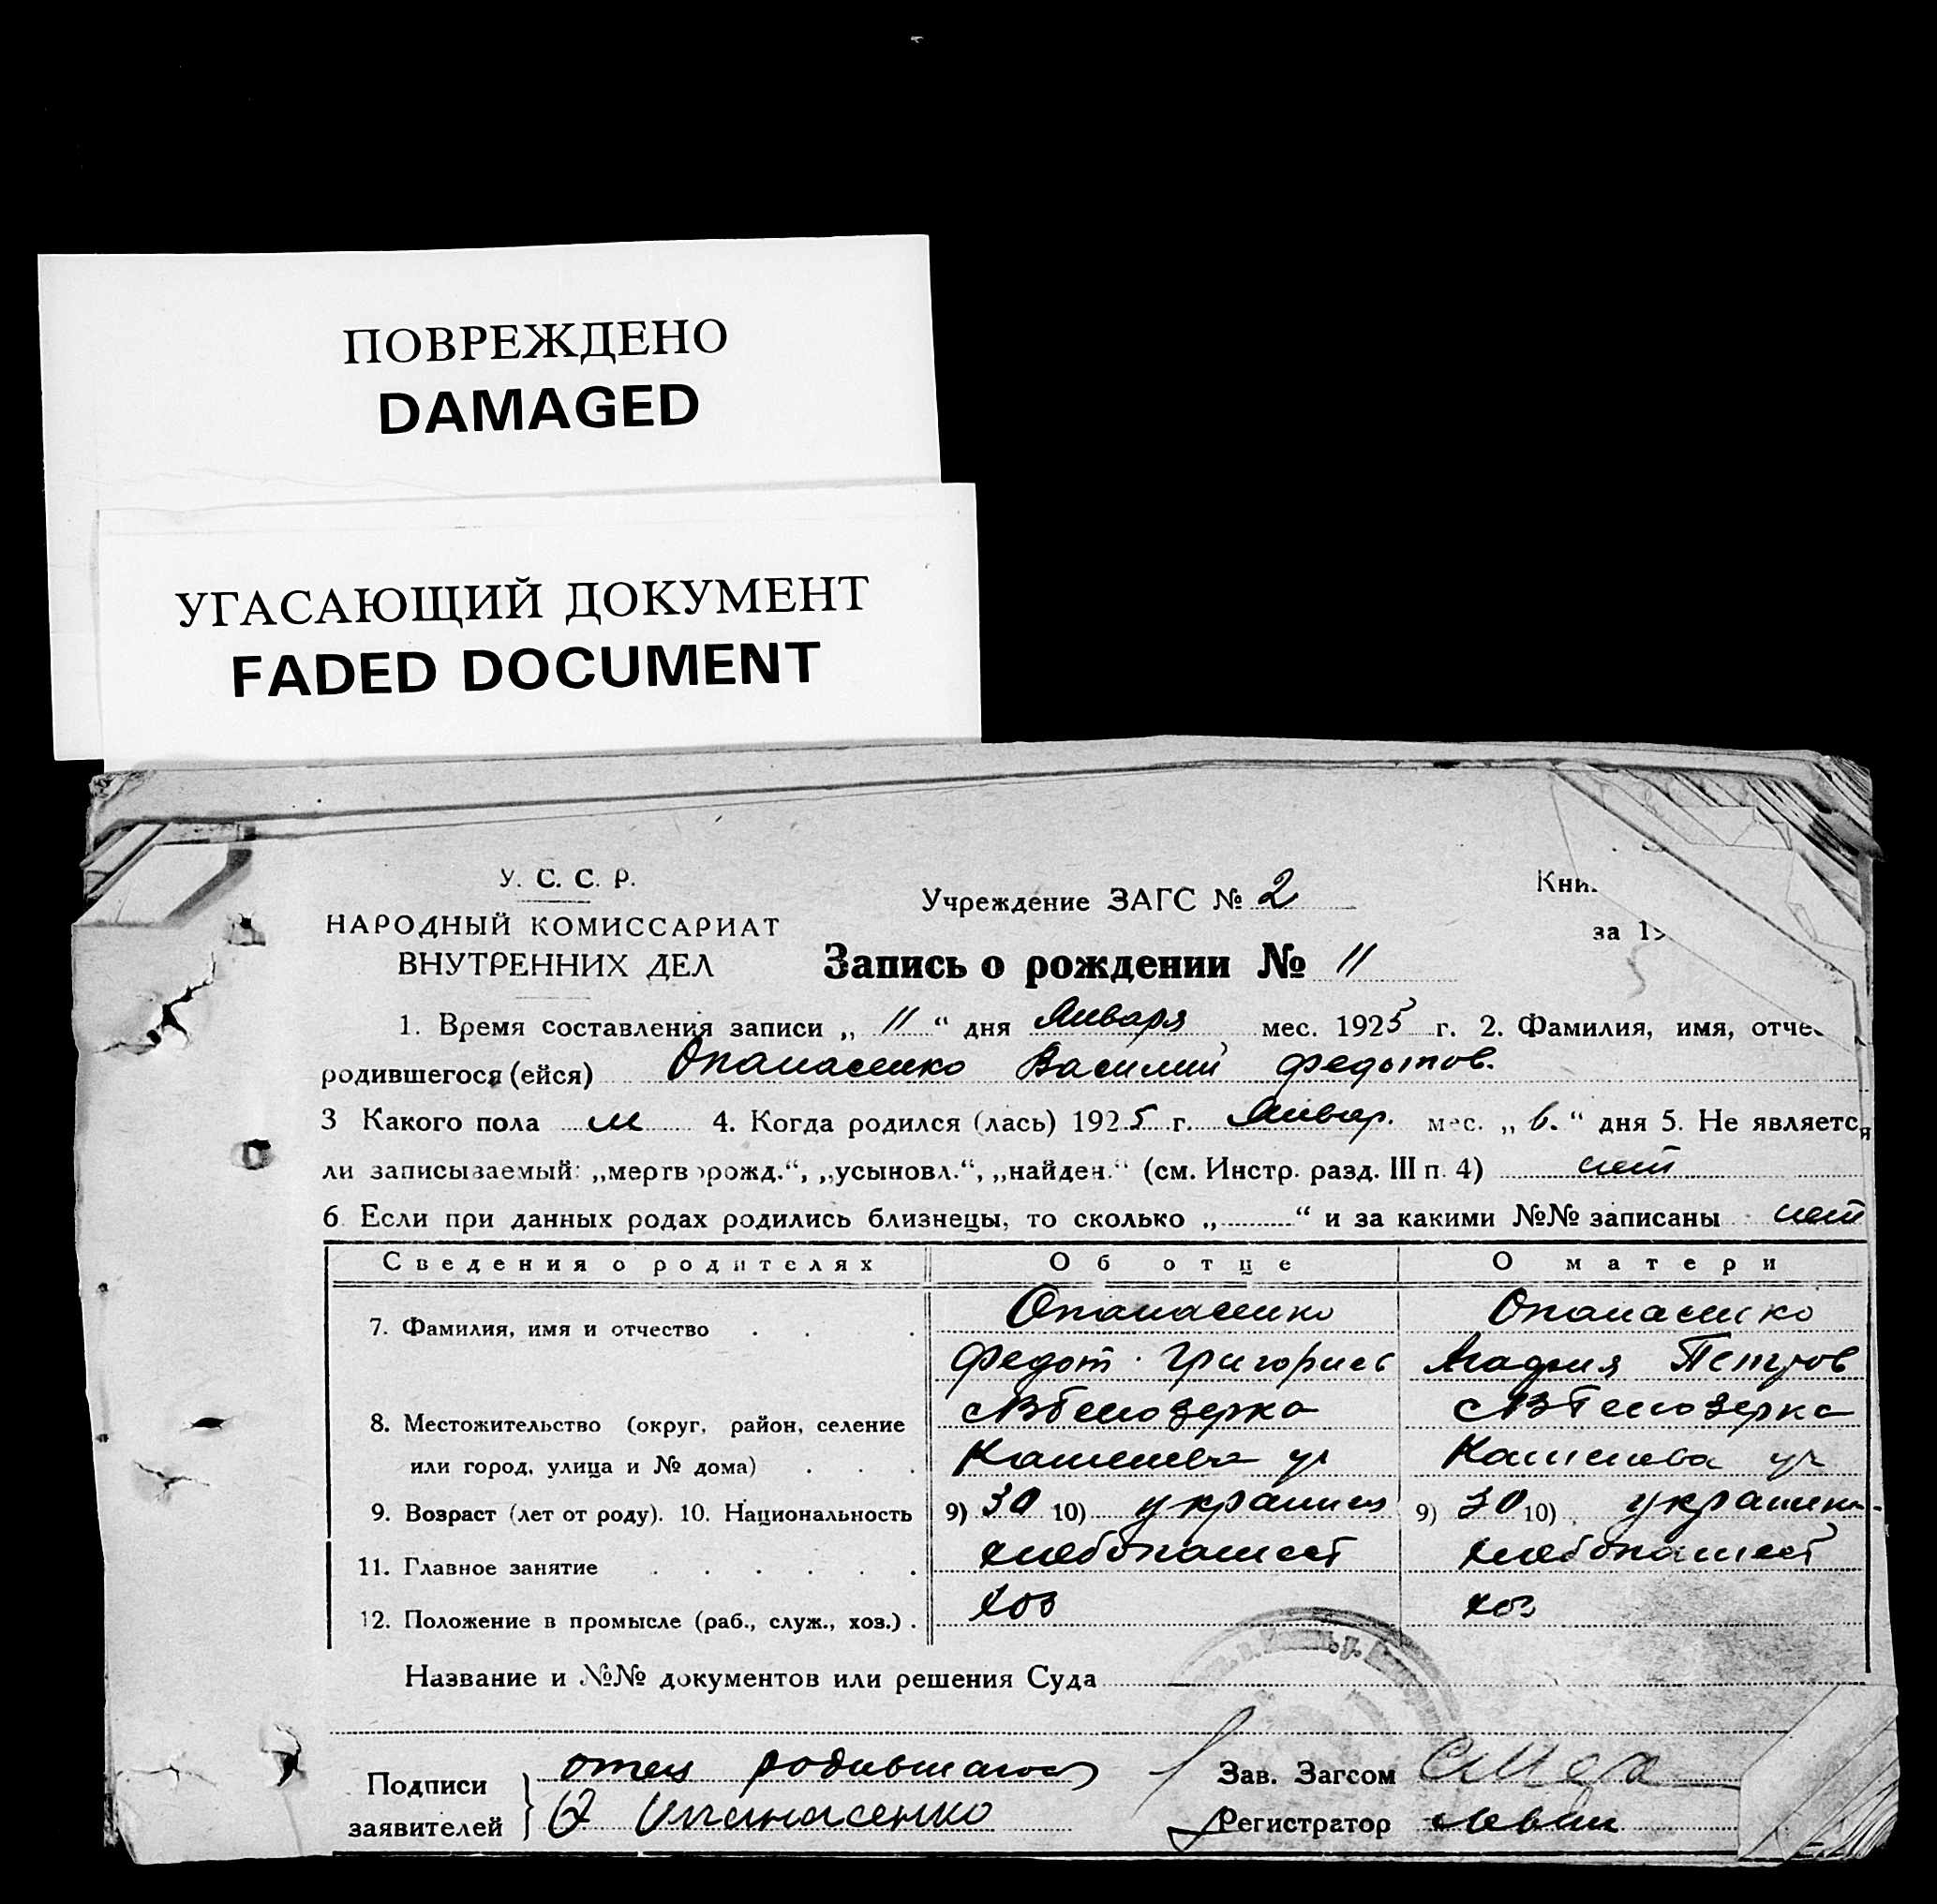 ПОВРЕЖДЕНО
DAMAGED
УГАСАЮЩИЙ ДОКУМЕНТ
FADED DOCUMENT
У. С. С. Р.
НАРОДНЫЙ КОМИССАРИАТ
ВНУТРЕННИХ ДЕЛ
Учреждение ЗАГС № 2
Кни
за 19
Запись о рождении № 11
1. Время составления записи „ 11 “ дня Января мес. 1925 г. 2. Фамилия, имя, отчес
родившегося (ейся) Опанасенко Василий Федотов.
3 Какого пола м 4. Когда родился (лась) 1925 г. Январ. мес. „ 6. “ дня 5. Не является
ли записываемый: „мертворожд.“, „усыновл.“, „найден.“ (см. Инстр. разд. III п. 4) нет
6 Если при данных родах родились близнецы, то сколько „ “ и за какими №№ записаны нет
Сведения о родителях Об отце О матери
7. Фамилия, имя и отчество Опанасенко Опанасенко
Федот Григорьев Агафия Петров
8. Местожительство (округ, район, селение Белозерка Белозерка
или город, улица и № дома) Кашенева ул Кашенева ул
9. Возраст (лет от роду). 10. Национальность 9) 30 10) украинец 9) 30 10) украинк
11. Главное занятие хлебопашест хлебопашест
12. Положение в промысле (раб., служ., хоз.) хоз хоз
Название и №№ документов или решения Суда
Подписи заявителей } отец родившагося
Опанасенко
Зав. Загсом
Регистратор Левин